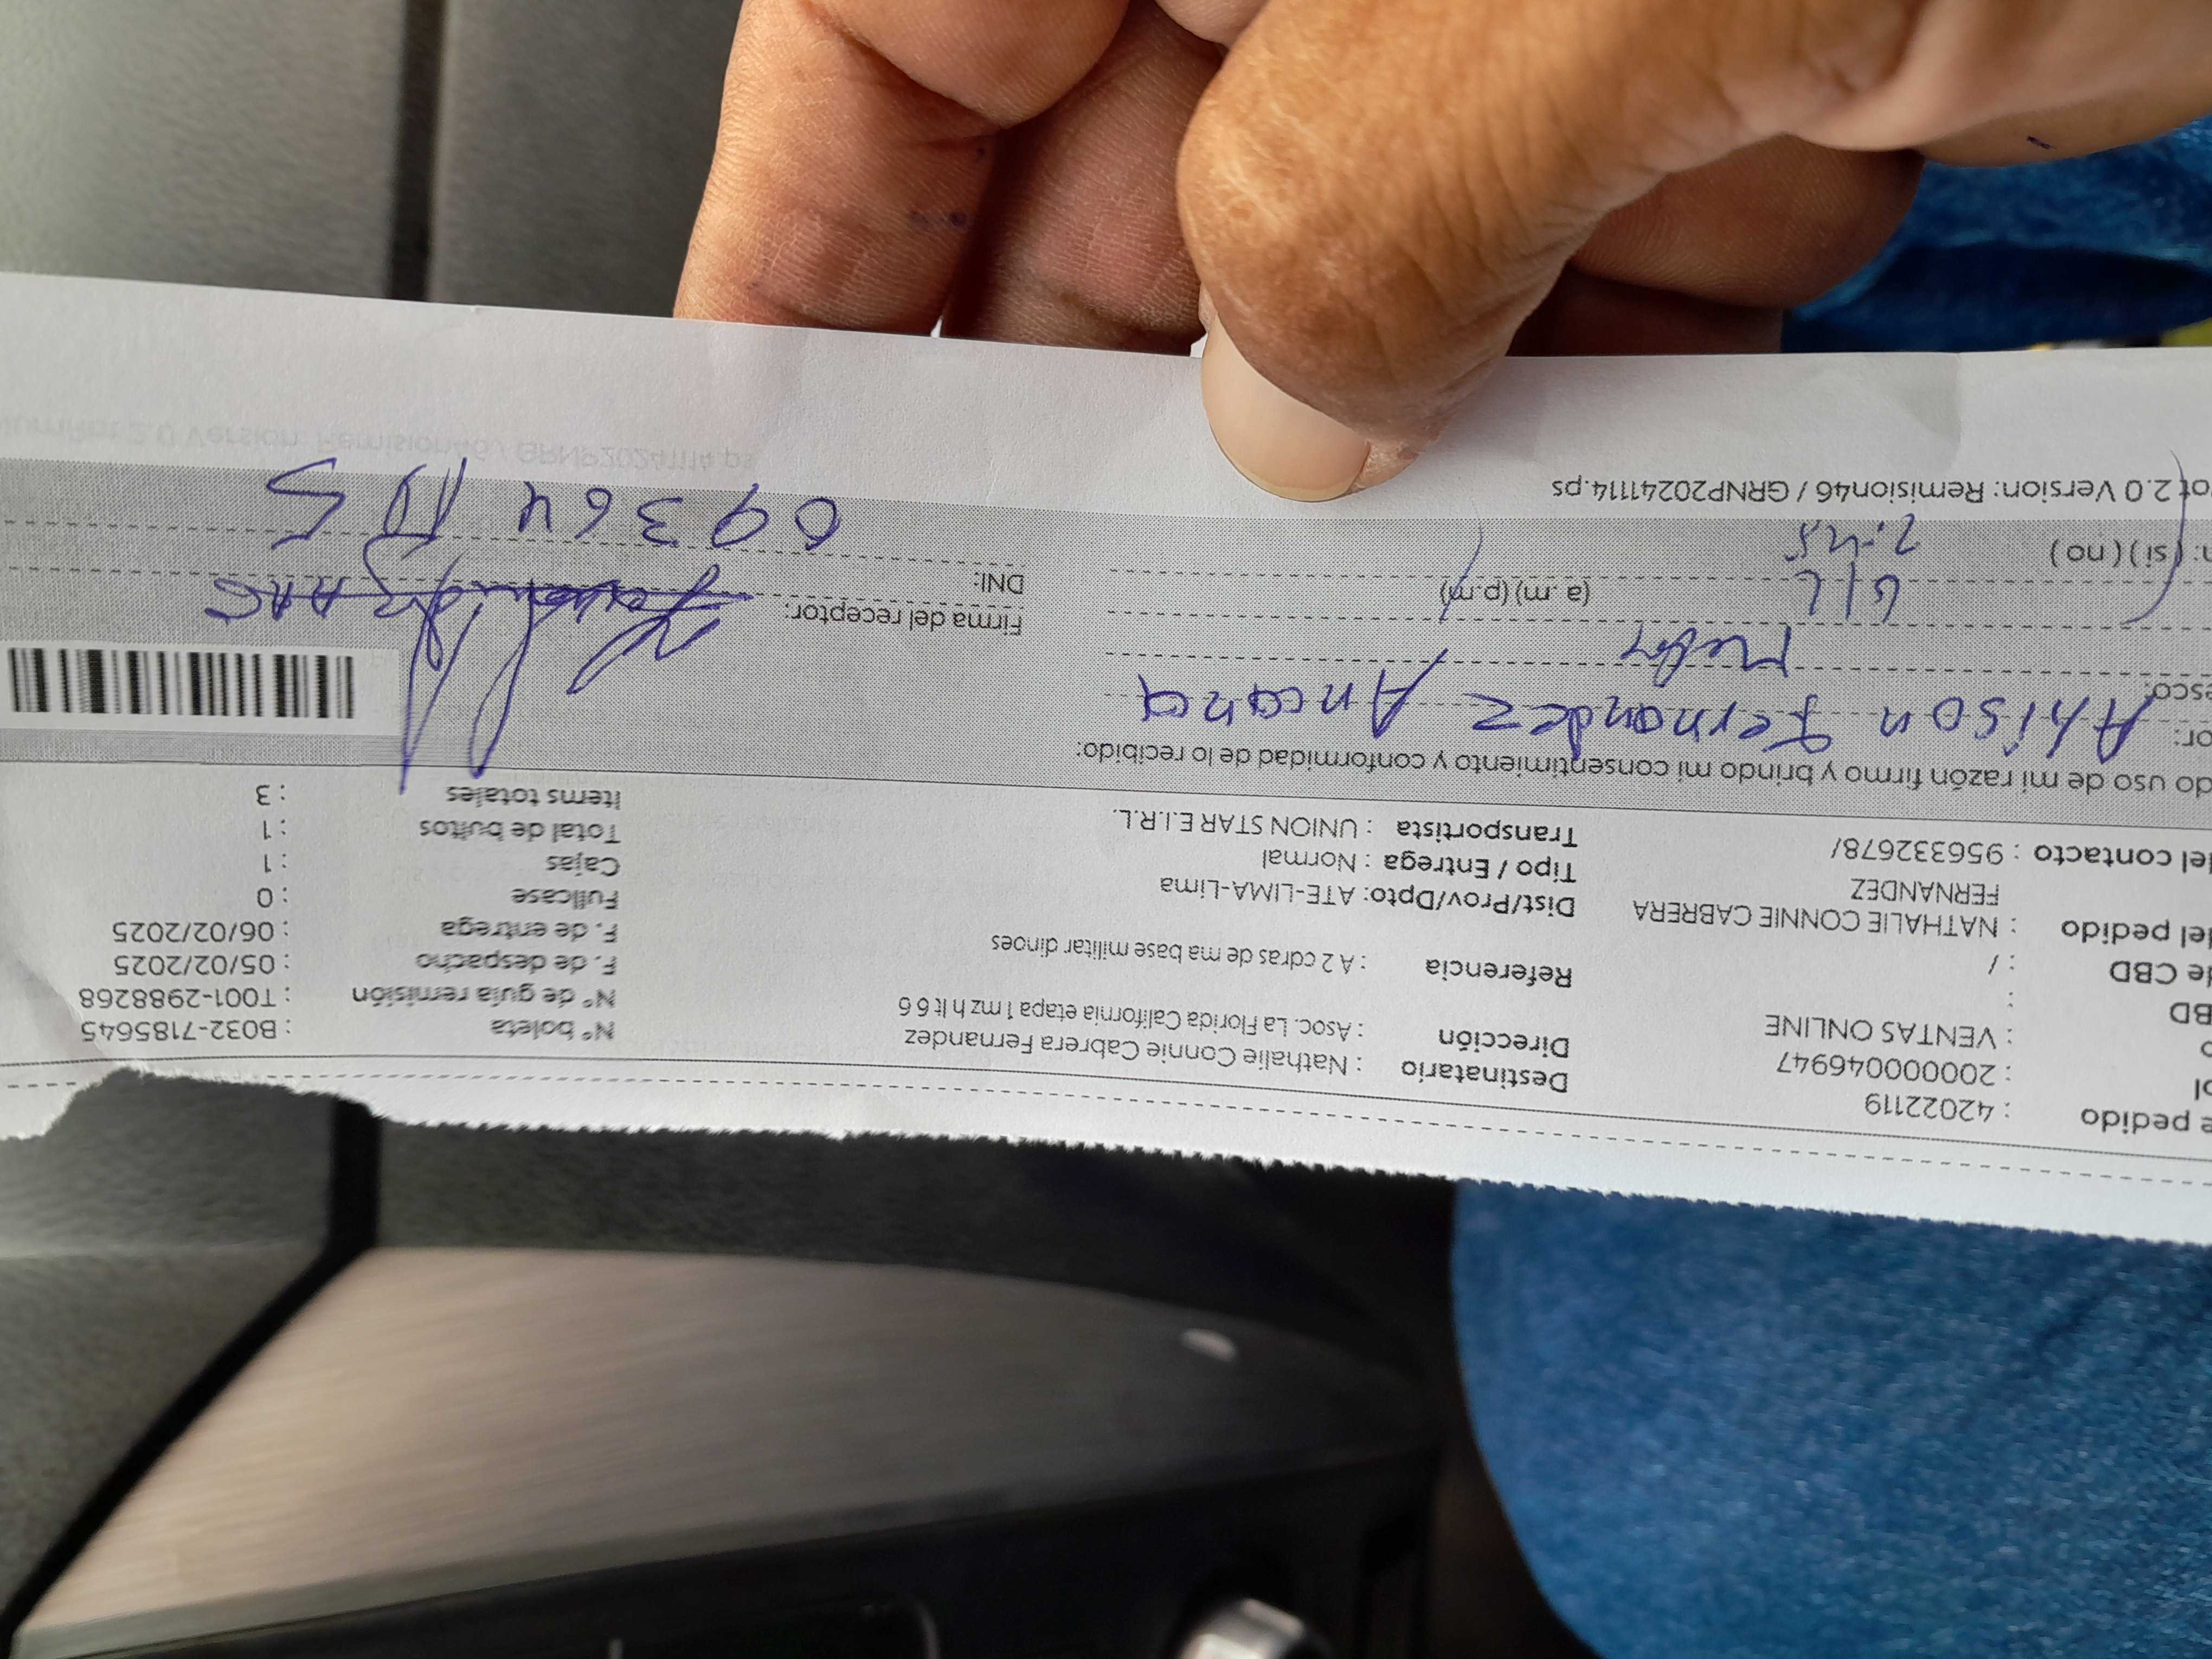 e pedido : 42022119
ol : 200000046947
o : VENTAS ONLINE
BD :
de CBD : /
del pedido : NATHALIE CONNIE CABRERA
FERNANDEZ
del contacto : 956332678/
Destinatario : Nathalie Connie Cabrera Fernandez
Dirección : Asoc. La Florida California etapa 1 mz h lt 6 6
Referencia : A 2 cdras de ma base militar dinoes
Dist/Prov/Dpto: ATE-LIMA-Lima
Tipo / Entrega : Normal
Transportista : UNION STAR E.I.R.L.
N° boleta : B032-7185645
N° de guía remisión : T001-2988268
F. de despacho : 05/02/2025
F. de entrega : 06/02/2025
Fullcase : 0
Cajas : 1
Total de bultos : 1
Items totales : 3
do uso de mi razón firmo y brindo mi consentimiento y conformidad de lo recibido:
or: Ahison Fernandez Ancana
esco:
6/2 (a.m) (p.m)
n: (si) (no) 2:45
Firma del receptor:
DNI: 09364105
ot 2.0 Version: Remision46 / GRNP20241114.ps